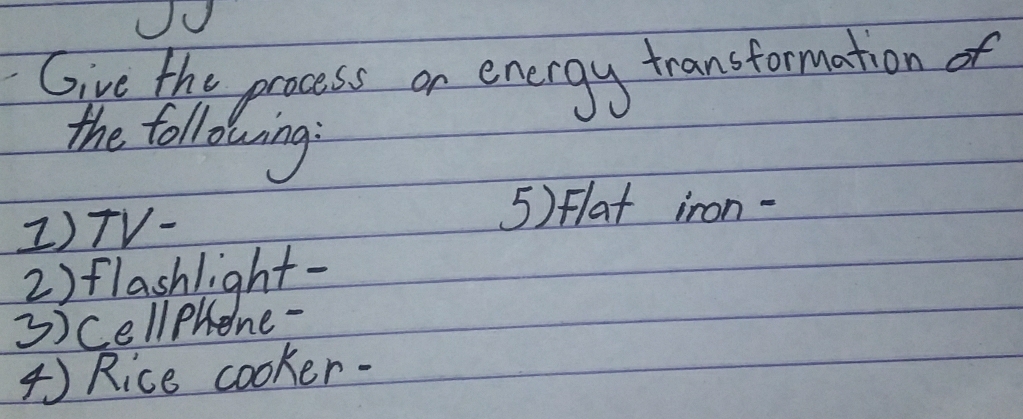 - Give the process or energy transformation of
the following:
1) TV -
2) flashlight -
3) CellPhone -
4) Rice cooker -
5) Flat iron -